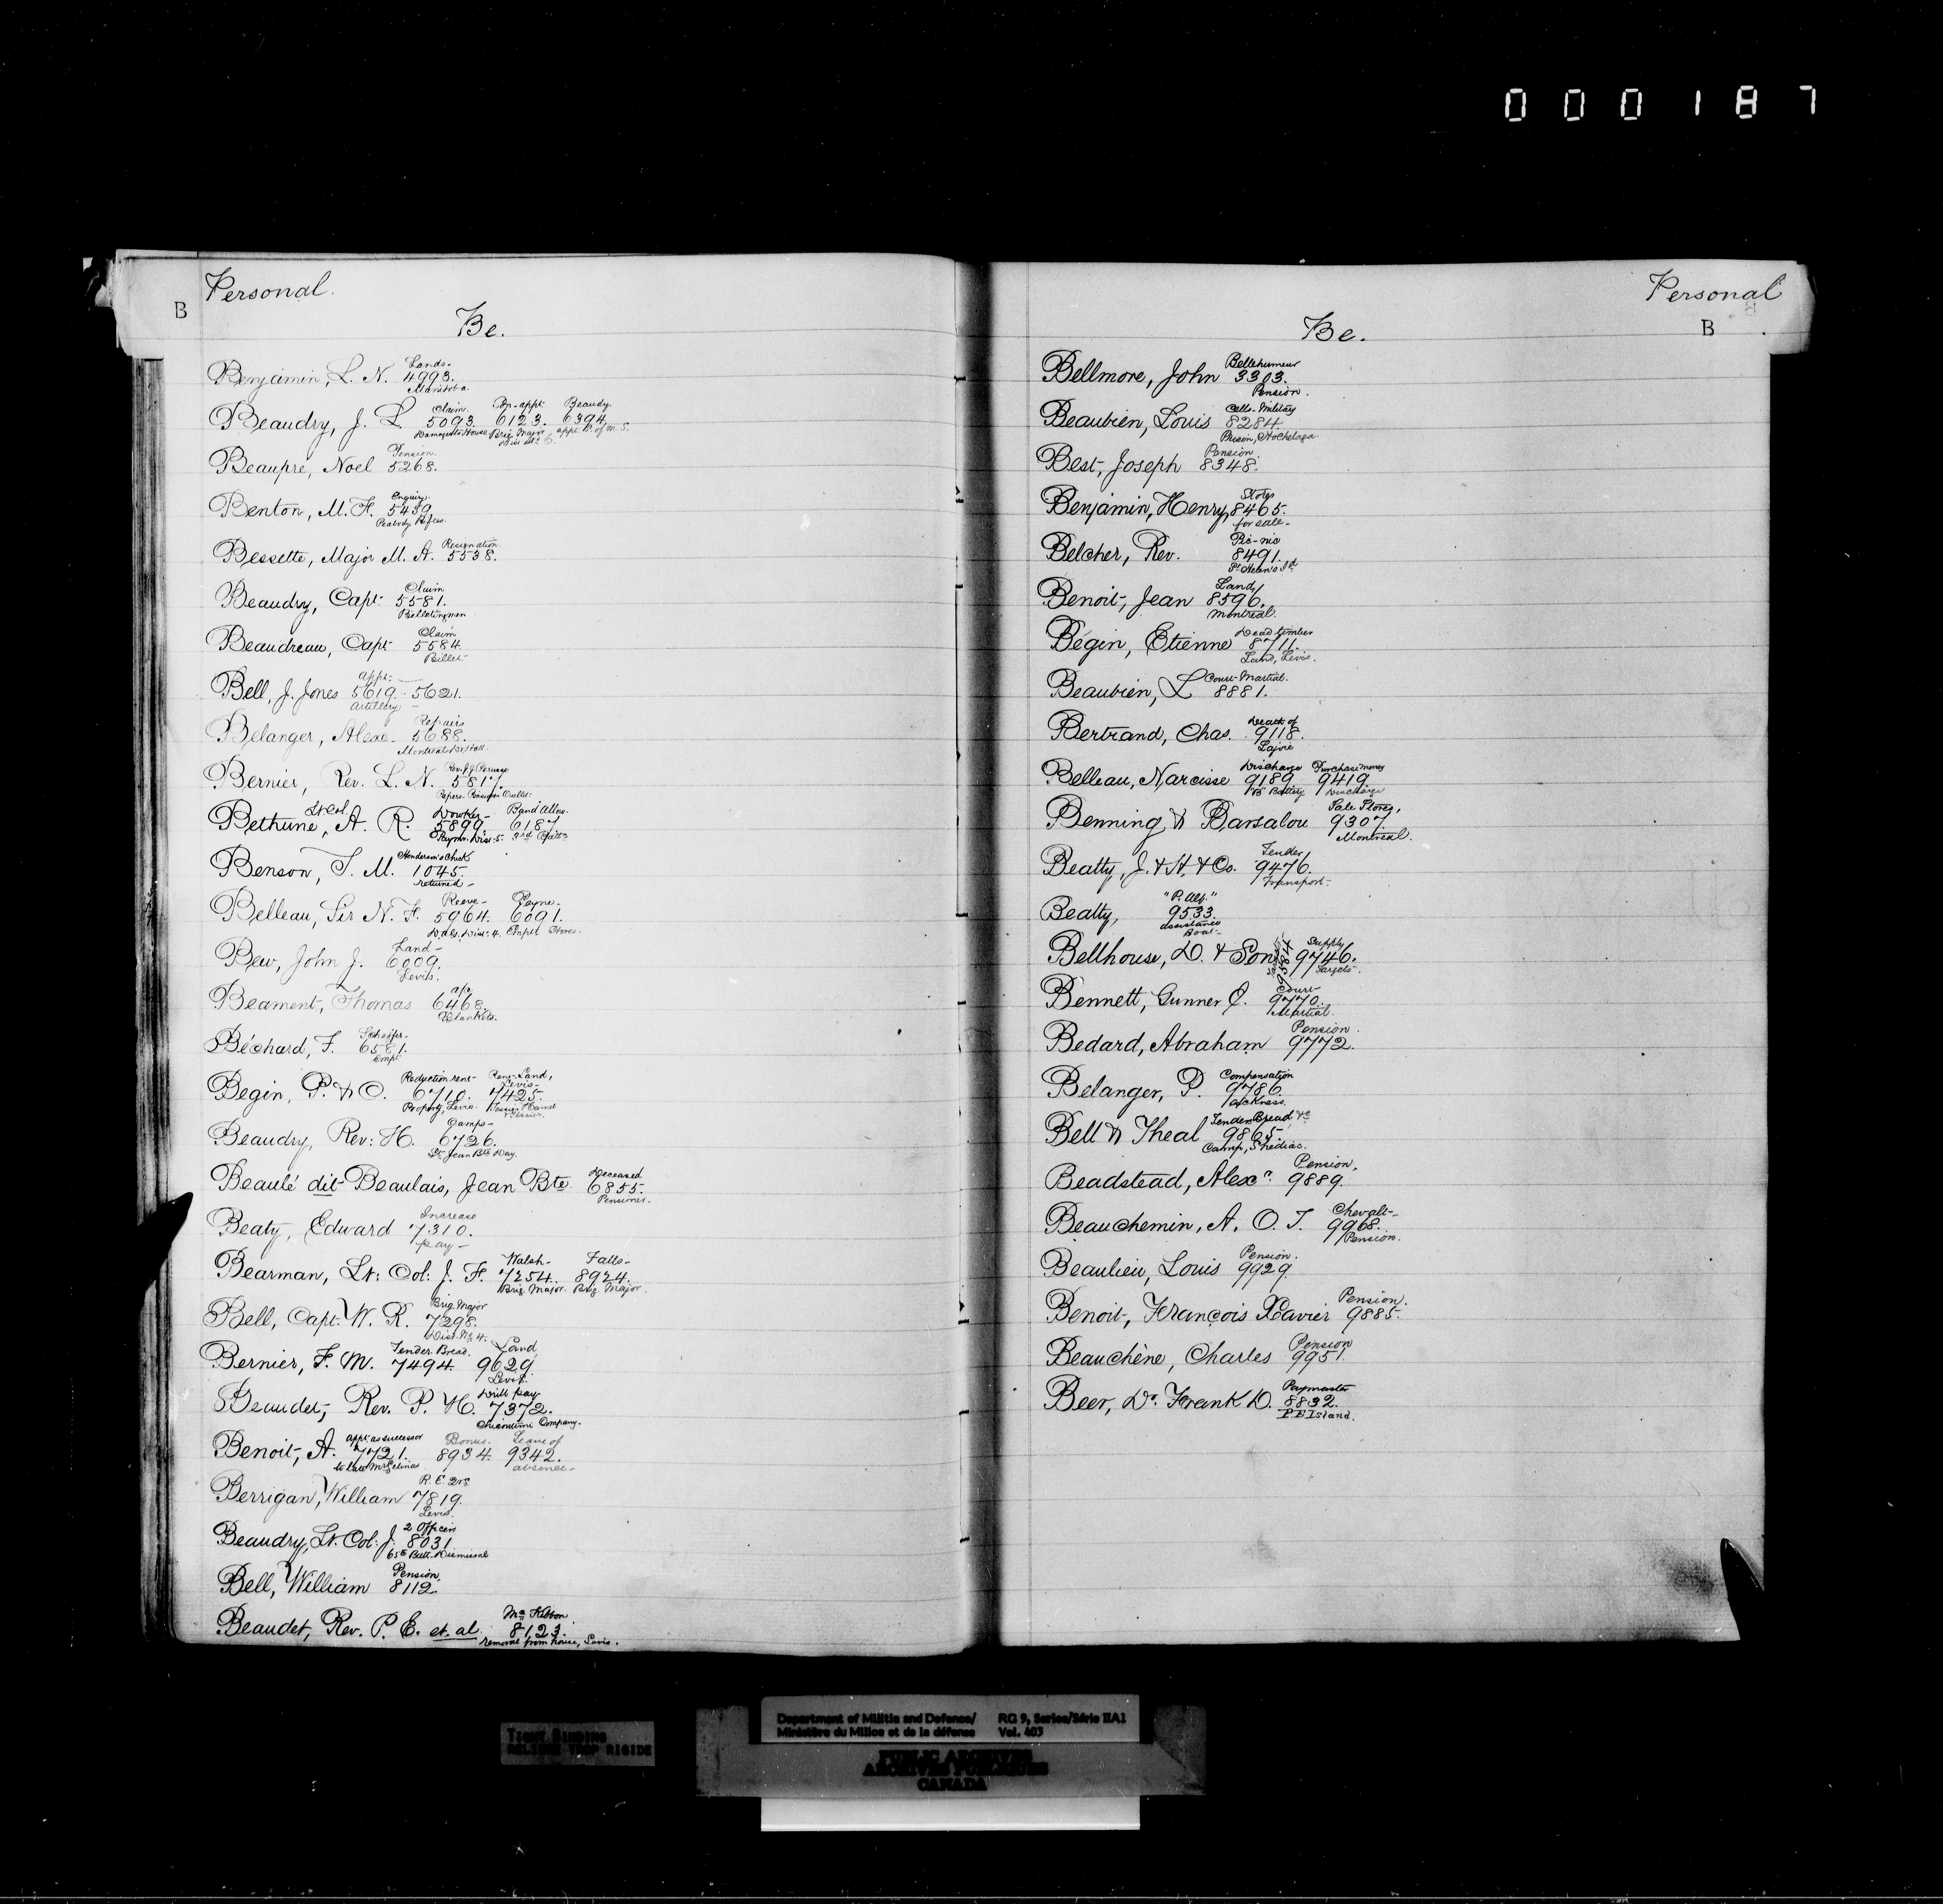 000187
Personal.
B
Be.
Lands-
Benjamin, L. N. 4993.
Manitoba
Claim. Beaudry.
Beaudry, J. L. 5093. 6123. 6394.
Brig. Major
Pension.
Beaupré, Noel 5268.
Enquiry.
Benton, M. F. 5439.
Peabody Rifles.
Resignation.
Bessette, Major M. A. 5538.
Claim
Beaudry, Capt. 5581.
Claim
Beaudreau, Capt 5584.
Billet.
appt.
Bell, J. Jones 5619. 5621.
Artillery
Repairs
Belanger, Alexr. 5688.
Bernier, Rev. L. N. 5817.
Lt. Col. Band Allce.
Bethune, A. R. 5899. 6187.
Paymr. Dist. 5. 3rd Batt.
Henderson's Check
Benson, T. M. 1045.
returned-
Reeve- Payne-
Belleau, Sir N. F. 5964. 6091.
Dist. 4. Empt. Stores.
Land-
Bew, John J. 6009.
Levis.
Beament, Thomas 6468.
Blankets.
Béchard, F. 6581.
Empt
Reduction rent- Rent-Land,
Levis-
Begin, P. & O. 6710. 7425.
Property, Levis.
Camps-
Beaudry, Rev: H. 6726.
St. Jean Bte Day.
Deceased
Beaulé dit Beaulais, Jean Bte. 6855.
Pensioner.
Increase
Beaty, Edward 7310.
pay-
Walsh- Falls-
Bearman, Lt: Col: J. F. 7254. 8924.
Brig. Major. Brig. Major.
Brig. Major
Bell, Capt. W. R. 7298.
Dist. No 4.
Tender Bread. Land
Bernier, F. M. 7494. 9629.
Levis.
Drill pay
Beaudet, Rev. P. H. 7372.
Chicoutimi Company.
appt as successor Bonus. Leave of
Benoit, A. 7721. 8934. 9342.
to late Mr Gelinas absence-
Berrigan, William 7819.
Levis.
2 Officers
Beaudry, Lt. Col: J. 8031.
65th Batt. Dismissal
Pension.
Bell, William 8112.
Mc Kibbon.
Beaudet, Rev. P. E. et. al. 8123.
removal from house, Levis.
Personal
B
Be.
Bellehumeur
Bellmore, John 3303.
Pension.
Cells-Military
Beaubien, Louis 8284.
Prison, Hochelaga.
Pension.
Best, Joseph 8348.
Stores
Benjamin, Henry, 8465.
for sale-
Pic-nic
Belcher, Rev. 8491.
St. Helen's Id
Land,
Benoit, Jean 8596.
Montreal.
Dead timber
Begin, Etienne 8711.
Land, Levis.
Court-Martial.
Beaubien, L 8881.
Death of
Bertrand, Chas. 9118.
Lajoie
Discharge Purchase money
Belleau, Narcisse 9189. 9419.
"B" Battery Discharge
Sale Stores,
Benning & Barsalou 9307.
Montreal.
Tender
Beatty, J. & H. & Co. 9476.
Transport.
Beatty, 9533.
assistance
Boat-
Supply
Bellhouse, D. & Son 9746.
Targets.
Court-
Bennett, Gunner J. 9770.
Martial.
Pension.
Bedard, Abraham 9772.
Compensation
Belanger, P. 9786.
sickness.
Tender Bread &c
Bell & Theal 9865.
Camp, Shediac.
Pension.
Beadstead, Alexr. 9889.
Beauchemin, A. O. T. 9968.
Pension.
Pension.
Beaulieu, Louis 9929.
Pension.
Benoit, François Xavier 9885.
Pension
Beauchêne, Charles 9951.
Paymaster
Beer, Dr. Frank D. 8832.
P E Island.
TIGHT BINDING
RELIURE TROP RIGIDE
Department of Militia and Defence/ RG 9, Series/Série IIA1
Ministère du Milice et de la défense Vol. 403
PUBLIC ARCHIVES
ARCHIVES PUBLIQUES
CANADA